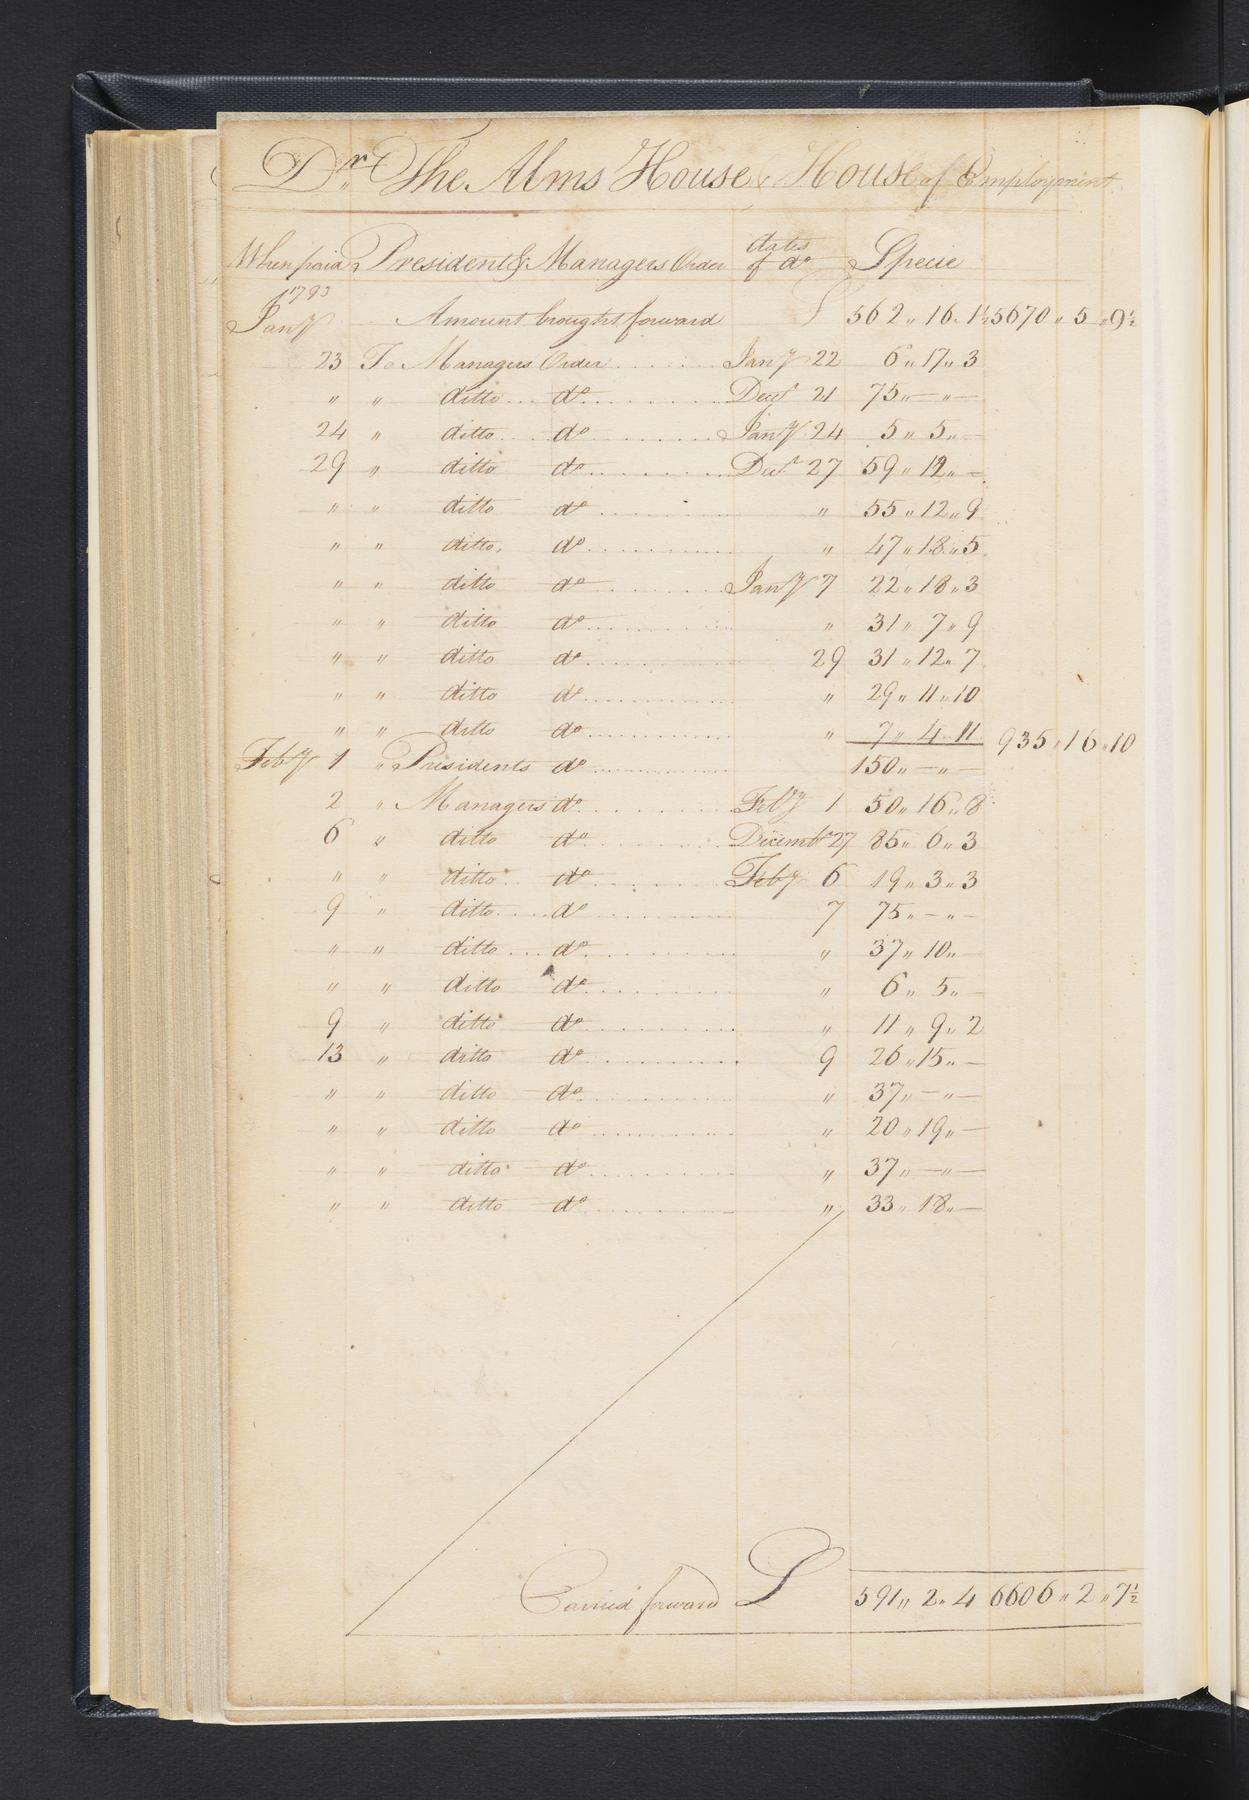 Dr. The Alms House & House of Employment
When paid Presidents & Managers Order dates of do Specie
1793
Jany Amount brought forward £ 562 „ 16 „ 1½ 5670 „ 5 „ 9½
23 To Managers Order Jany 22 6 „ 17 „ 3
„ „ ditto do Decr 21 75 „ — „ —
24 „ ditto do Jany 24 5 „ 5 „ —
29 „ ditto do Decr 27 59 „ 12 „ —
„ „ ditto do „ 55 „ 12 „ 9
„ „ ditto do „ 47 „ 18 „ 5
„ „ ditto do Jany 7 22 „ 18 „ 3
„ „ ditto do „ 31 „ 7 „ 9
„ „ ditto do 29 31 „ 12 „ 7
„ „ ditto do „ 29 „ 11 „ 10
„ „ ditto do „ 7 „ 4 „ 11 935 „ 16 „ 10
Feby 1 „ Presidents do 150 „ — „ —
2 „ Managers do Feby 1 50 „ 16 „ 8
6 „ ditto do Decembr 27 85 „ 6 „ 3
„ „ ditto do Feby 6 19 „ 3 „ 3
9 „ ditto do 7 75 „ — „ —
„ „ ditto do „ 37 „ 10 „ —
„ „ ditto do „ 6 „ 5 „ —
9 „ ditto do „ 11 „ 9 „ 2
13 „ ditto do 9 26 „ 15 „ —
„ „ ditto do „ 37 „ — „ —
„ „ ditto do „ 20 „ 19 „ —
„ „ ditto do „ 37 „ — „ —
„ „ ditto do „ 33 „ 18 „ —
Carried forward £ 591 „ 2 „ 4 6606 „ 2 „ 7½